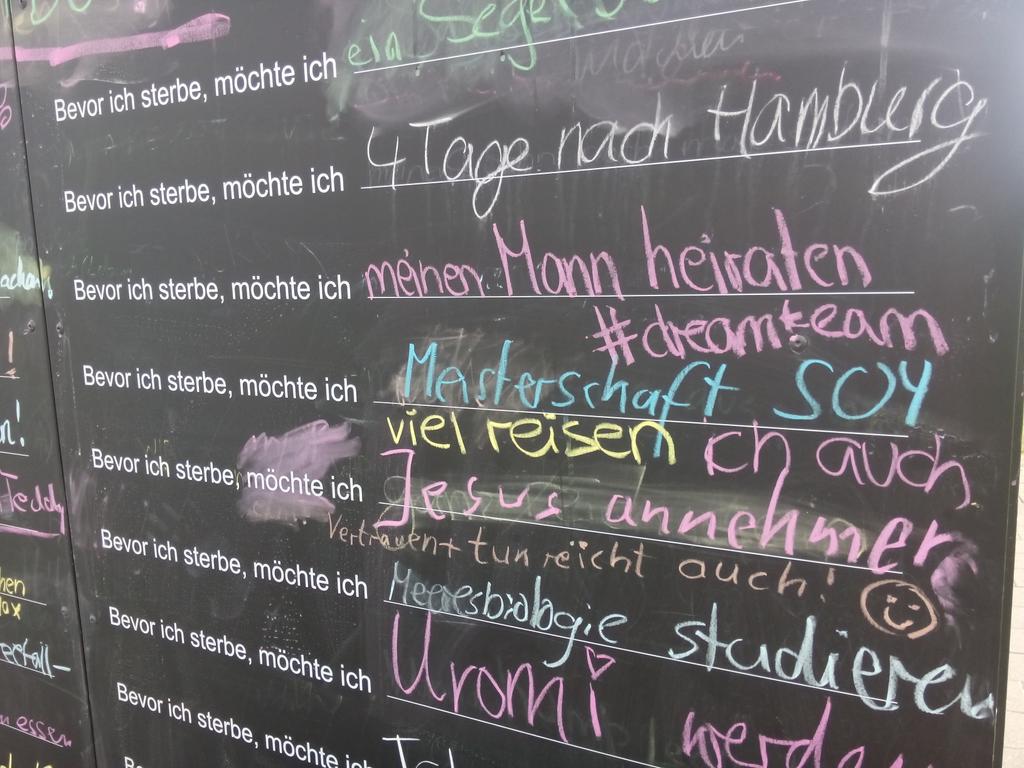 Bevor ich sterbe, möchte ich ein Segel
Bevor ich sterbe, möchte ich 4 Tage nach Hamburg
Bevor ich sterbe, möchte ich meinen Mann heiraten
#dreamteam
Bevor ich sterbe, möchte ich Meisterschaft SOY
viel reisen ich auch
Bevor ich sterbe, möchte ich Jesus annehmen
Vertrauen + tun reicht auch!
Bevor ich sterbe, möchte ich Meeresbiologie studieren
Bevor ich sterbe, möchte ich Uromi werden
Bevor ich sterbe, möchte ich
n!
Teddy
hen
ox
erfall-
messen